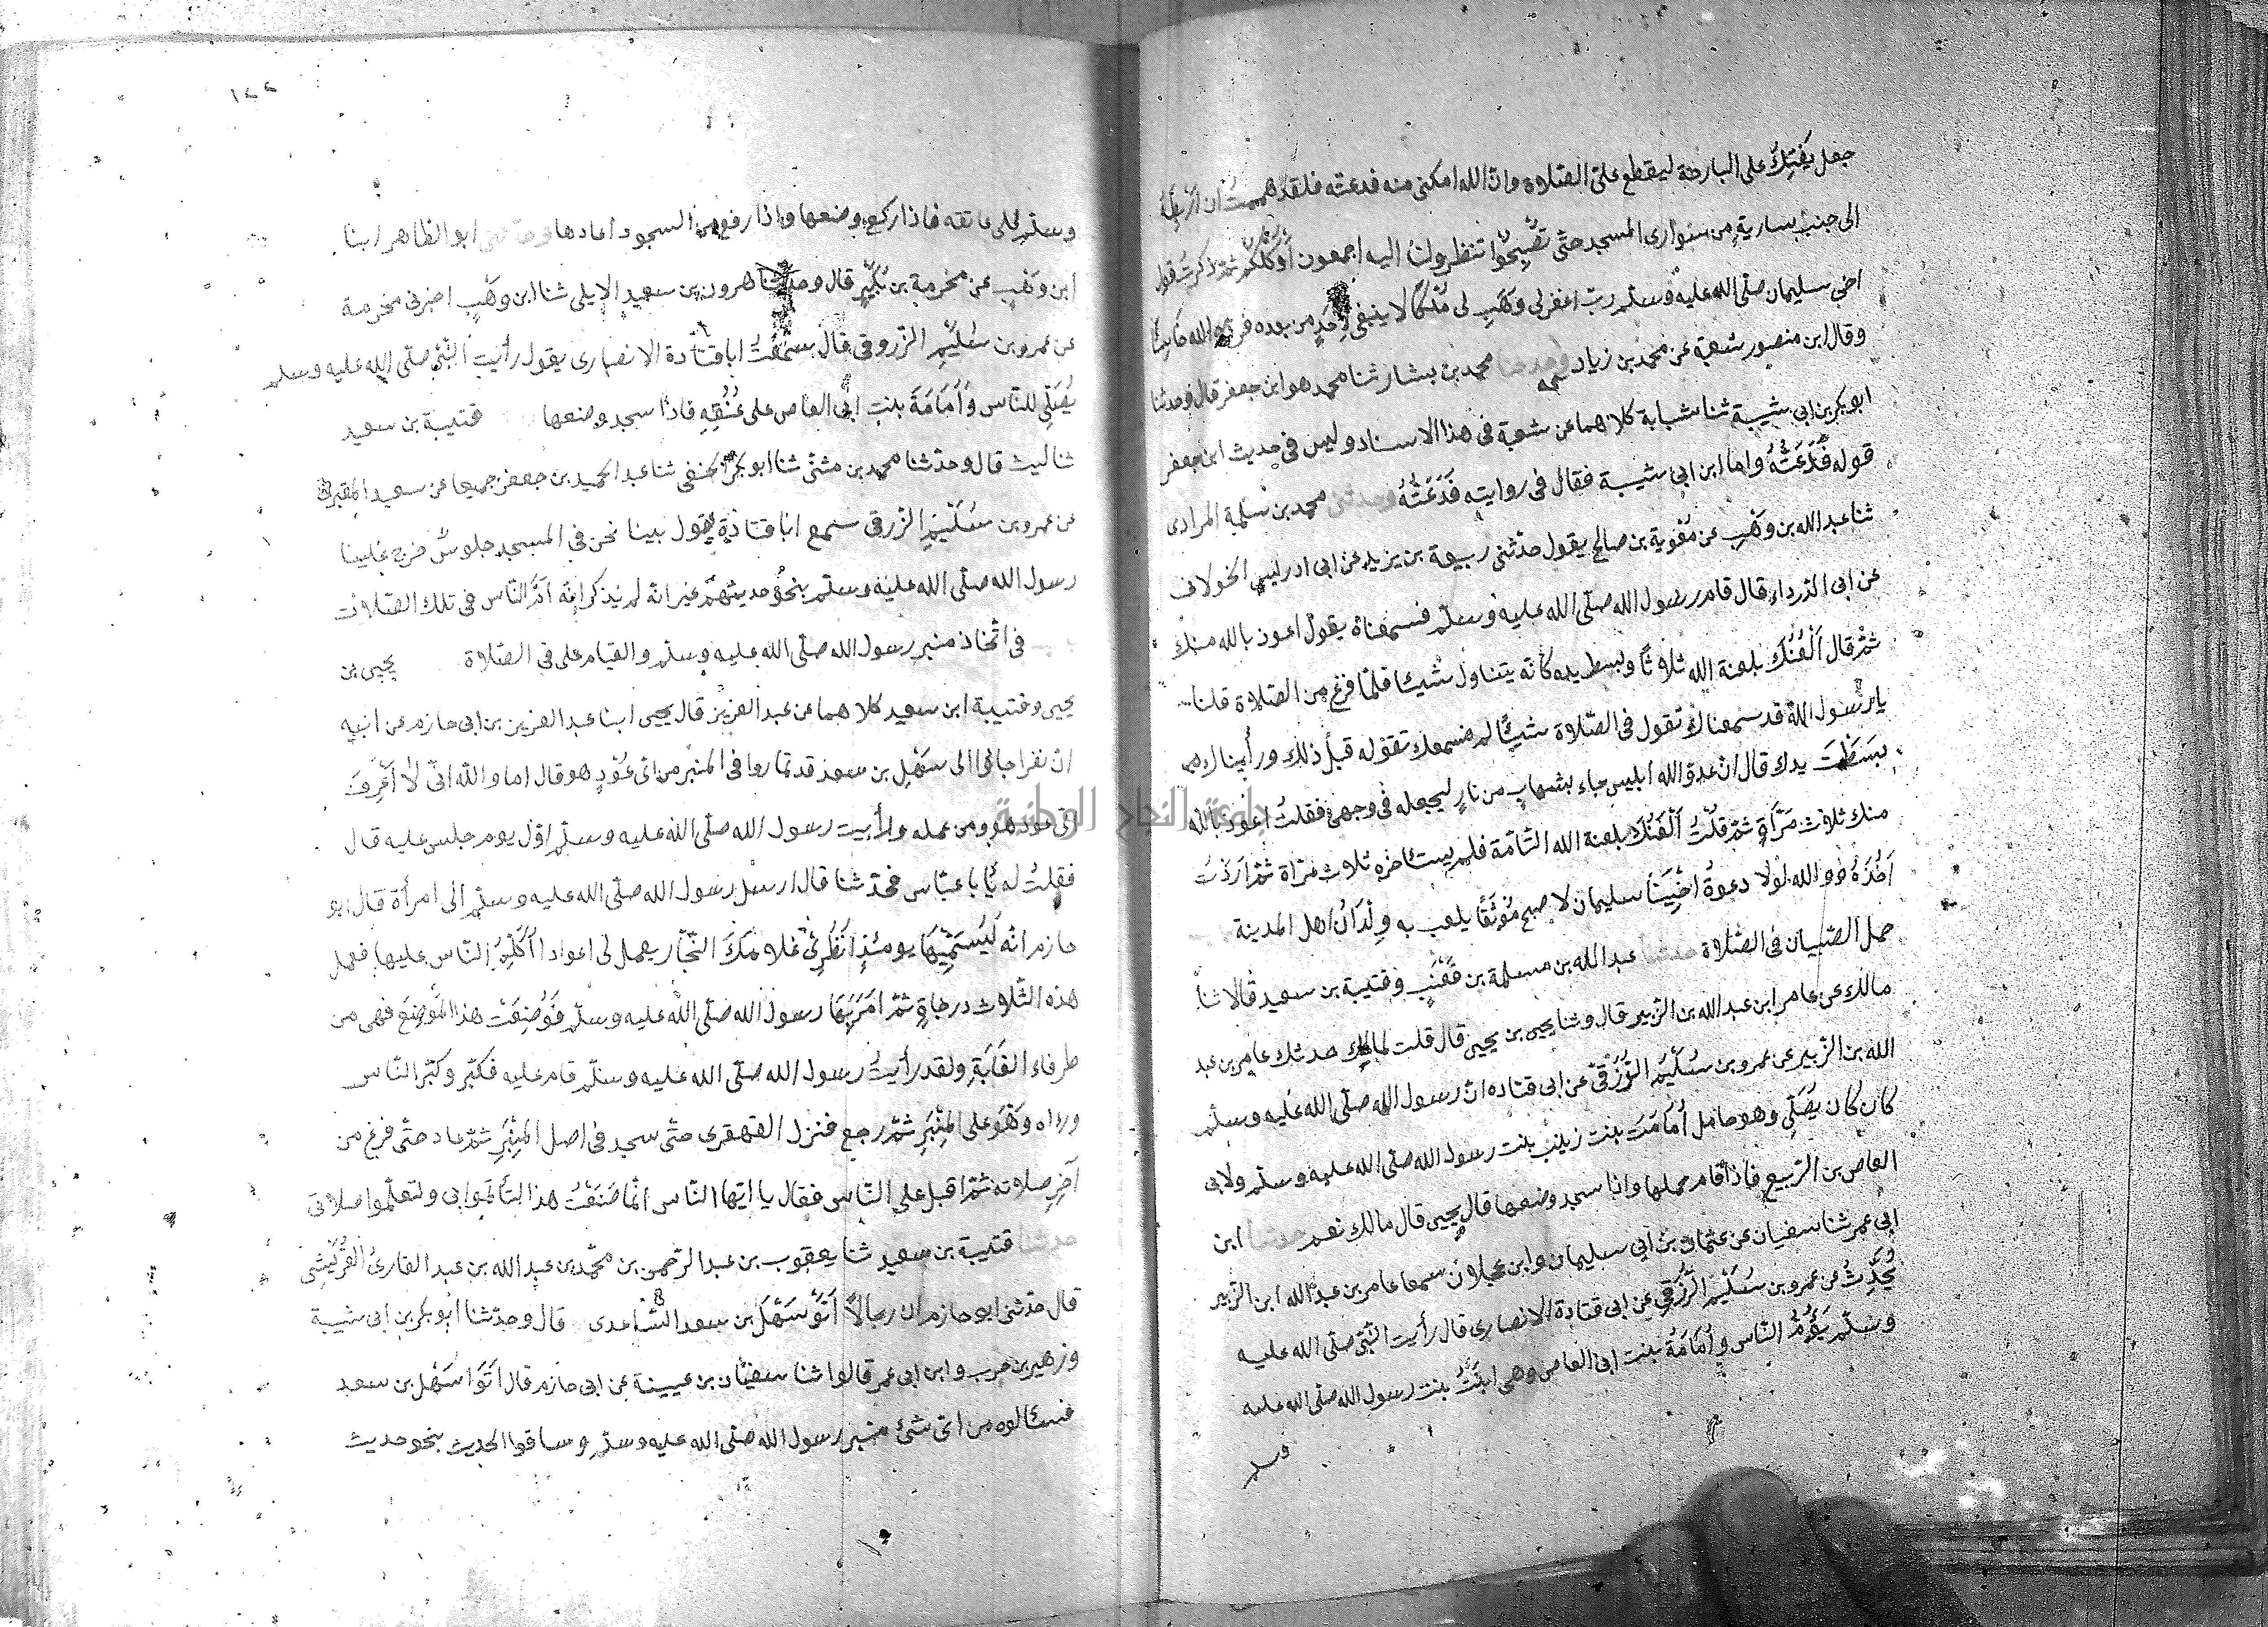 جعل يفتك على البارحة ليقطع على الصلاة وان الله امكنني منه فدعته فلقد هممت ان اربطه
الى جنب سارية من سواري المسجد حتى تصبحوا تنظرون اليه اجمعون او كلكم ثم ذكرت قول
اخى سليمان صلى الله عليه وسلم رب اغفر لى وهب لى ملكا لا ينبغى لاحد من بعده فرده الله خاسئا
وقال ابن منصور شعبة عن محمد بن زياد وحدثنا محمد بن بشار ثنا محمد هو ابن جعفر قال وحدثنا
ابو بكر بن ابى شيبة ثنا شبابة كلاهما عن شعبة فى هذا الاسناد وليس فى حديث ابن جعفر
قوله فدعته واما ابن ابى شيبة فقال فى روايته فدعته وحدثنى محمد بن سلمة المرادى
ثنا عبد الله بن وهب عن معوية بن صالح يقول حدثنى ربيعة بن يزيد عن ابى ادريس الخولانى
عن ابى الدرداء قال قام رسول الله صلى الله عليه وسلم فسمعناه يقول اعوذ بالله منك
ثم قال العنك بلعنة الله ثلاثا وبسط يده كانه يتناول شيئا فلما فرغ من الصلاة قلنا
يا رسول الله قد سمعناك تقول فى الصلاة شيئا لم نسمعك تقوله قبل ذلك ورأيناك
بسطت يدك قال ان عدو الله ابليس جاء بشهاب من نار ليجعله فى وجهى فقلت اعوذ بالله
منك ثلاث مراة ثم قلت العنك بلعنة الله التامة فلم يستأخره ثلاث مراة ثم اردت
اخذه فو الله لولا دعوة اخينا سليمان لاصبح موثقا يلعب به ولدان اهل المدينة
حمل الصبيان فى الصلاة حدثنا عبد الله بن مسلمة بن قعنب وقتيبة بن سعيد قالا ثنا
مالك عن عامر ابن عبد الله بن الزبير قال وثنا يحيى بن يحيى قال قلت لمالك حدثك عامر بن عبد
الله بن الزبير عن عمرو بن سليم الزرقى عن ابى قتاده ان رسول الله صلى الله عليه وسلم
كان كان يصلى وهو حامل أمامت بنت زينب بنت رسول الله صلى الله عليه وسلم ولابى
العاص بن الربيع فاذا قام حملها واذا سجد وضعها قال يحيى قال مالك نعم حدثنا ابن
ابى عمر ثنا سفيان عن عثمان بن ابى سليمان وابن عجلان سمعا عامر بن عبد الله ابن الزبير
يحدث عن عمرو بن سليم الزرقى عن ابى قتادة الانصارى قال رأيت النبى صلى الله عليه
وسلم يؤم الناس وأمامة بنت ابى العاص وهى ابنت بنت رسول الله صلى الله عليه
وسلم
١٧٧
وسلم على عاتقه فاذا ركع وضعها واذا رفع من السجود اعادها وحدثنى ابو الظاهر ابنا
ابن وهب عن مخرمة بن بكير قال وحدثنا هرون بن سعيد الايلى ثنا ابن وهب اخبرنى مخرمة
عن عمرو بن سليم الزروقى قال سمعت ابا قتادة الانصارى يقول رأيت النبى صلى الله عليه وسلم
يصلى للناس وأمامة بنت ابى العاص على عنقه فاذا سجد وضعها قتيبة بن سعيد
ثنا ليث قال وحدثنا محمد بن مثنى ثنا ابو بكر الحنفى ثنا عبد الحميد بن جعفر جميعا عن سعيد المقبرى
عن عمرو بن سليم الزرقى سمع ابا قتادة يقول بينا نحن فى المسجد جلوس خرج علينا
رسول الله صلى الله عليه وسلم بنحو حديثهم غير انه لم يذكر انه أم الناس فى تلك الصلاة
فى اتخاذ منبر رسول الله صلى الله عليه وسلم والقيام على فى الصلاة يحيى بن
يحيى وقتيبة ابن سعيد كلاهما عن عبد العزيز قال يحيى ابنا عبد العزيز بن ابى حازم عن ابيه
ان نفرا جاؤا الى سهل بن سعد قد تماروا فى المنبر من اى عود هو قال اما والله انى لا اعرف
اى عود هو ومن عمله ولأيت رسول الله صلى الله عليه وسلم اول يوم جلس عليه قال
فقلت له يا با عباس فحدثنا قال ارسل رسول الله صلى الله عليه وسلم الى امرأة قال ابو
حازم انه ليسميها يومئذ انظرى غلامك النجار يعمل لى اعوادا اكلم الناس عليها فعمل
هذه الثلاث درجاة ثم امر بها رسول الله صلى الله عليه وسلم فوضعت هذا الموضع فهى من
طرفاء الغابة ولقد رأيت رسول الله صلى الله عليه وسلم قام عليه فكبر وكبر الناس
وراه وهو على المنبر ثم رجع فنزل القهقرى حتى سجد فى اصل المنبر ثم عاد حتى فرغ من
آخر صلاته ثم اقبل على الناس فقال يا ايها الناس انما صنعت هذا لتأتموا بى ولتعلموا صلاتى
حدثنا قتيبة بن سعيد ثنا يعقوب بن عبد الرحمن بن محمد بن عبد الله بن عبد القارئ القريشى
قال حدثنى ابو حازم ان رجالا أتو سهل بن سعد الساعدى قال وحدثنا ابو بكر بن ابى شيبة
وزهير بن حرب وابن ابى عمر قالوا ثنا سفيان بن عيينة عن ابى حازم قال أتوا سهل بن سعد
فسئالوه من اى شئ منبر رسول الله صلى الله عليه وسلم وساقوا الحديث بنحو حديث
جامعة النجاح الوطنية